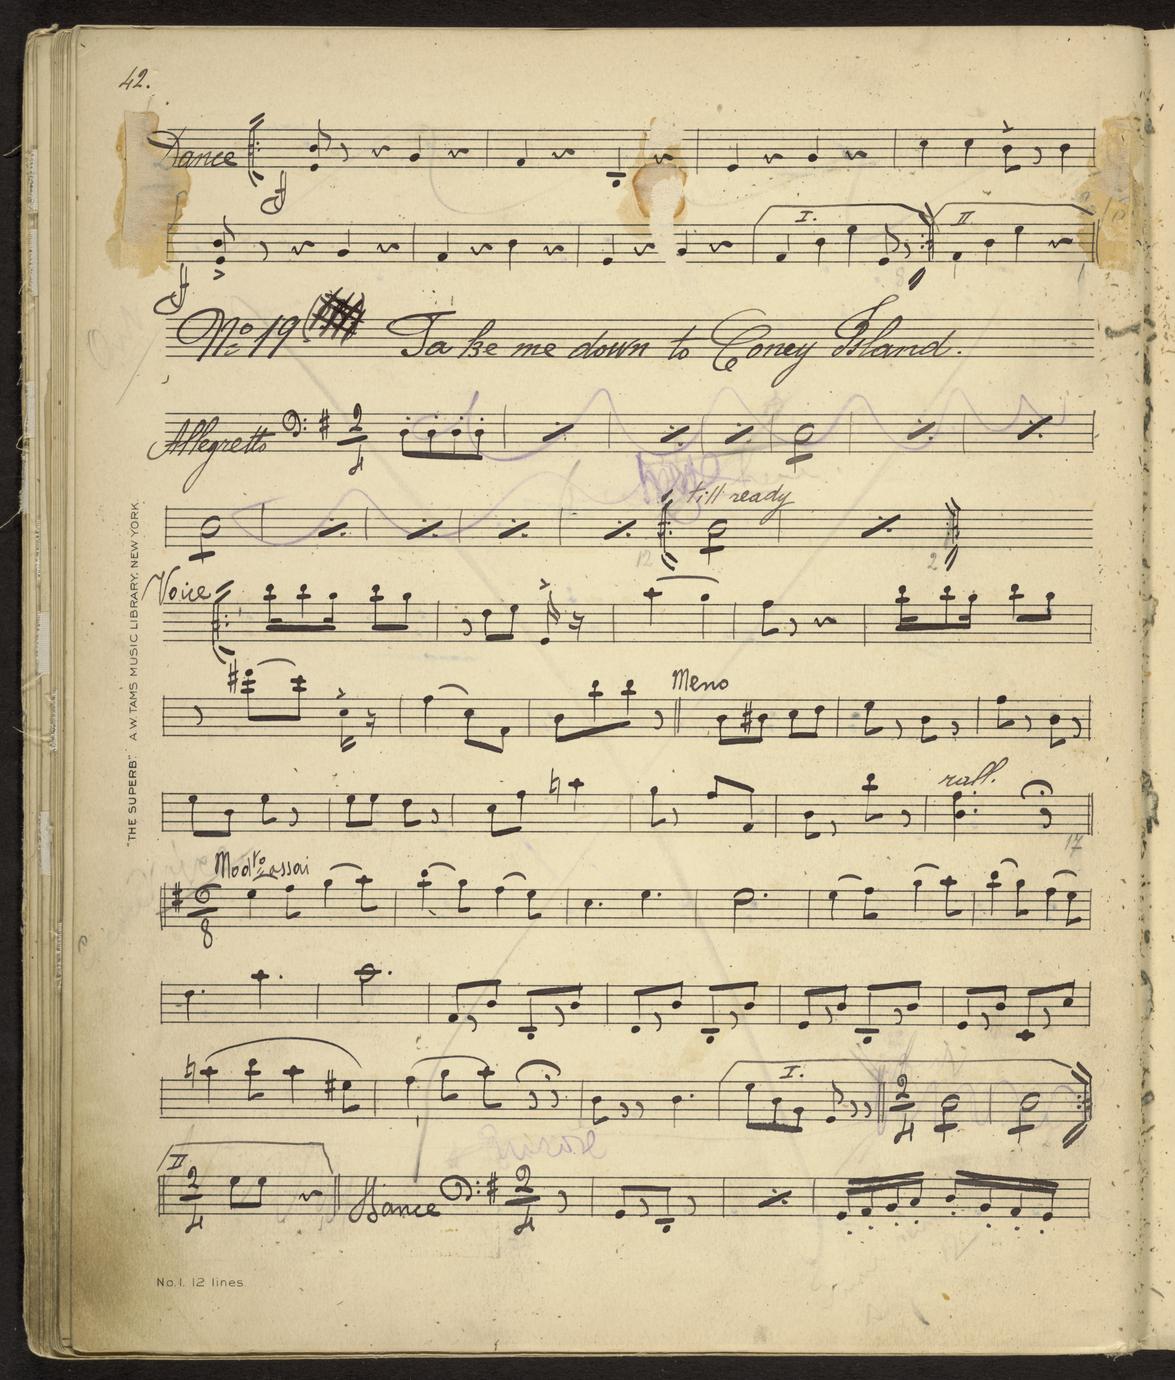 42.
Dance
I. II
No. 19 Take me down to Coney Island.
Allegretto 2/4
till ready
12 2
Voice
Meno
rall.
17
Modto assai
6/8
I. 2/4
II 2/4 Dance 2/4
"THE SUPERB" A.W. TAMS MUSIC LIBRARY. NEW YORK
No. 1. 12 lines